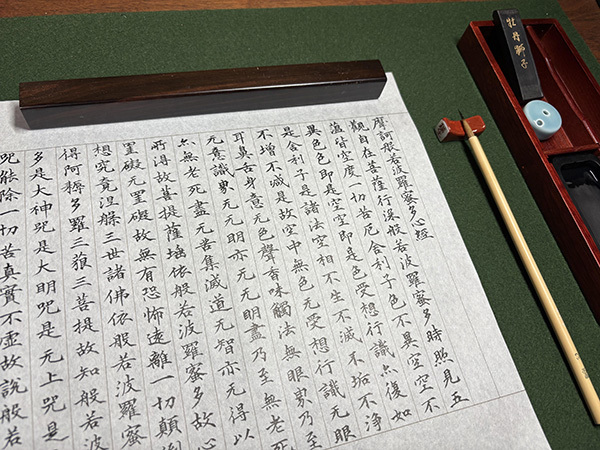 摩訶般若波羅蜜多心經
觀自在菩薩行深般若波羅蜜多時照見五
蘊皆空度一切苦厄舍利子色不異空空不
異色色即是空空即是色受想行識亦復如
是舍利子是諸法空相不生不滅不垢不淨
不增不減是故空中無色无受想行識无眼
耳鼻舌身意无色聲香味觸法無眼界乃至
无意識界无无明亦无无明盡乃至無老死
亦無老死盡无苦集滅道无智亦无得以
所得故菩提薩埵依般若波羅蜜多故心
罣礙无罣礙故無有恐怖遠離一切顛倒
想究竟涅槃三世諸佛依般若波羅蜜
得阿耨多羅三藐三菩提故知般若波
多是大神呪是大明呪是无上呪是
呪能除一切苦真實不虛故說般若
牡丹獅子